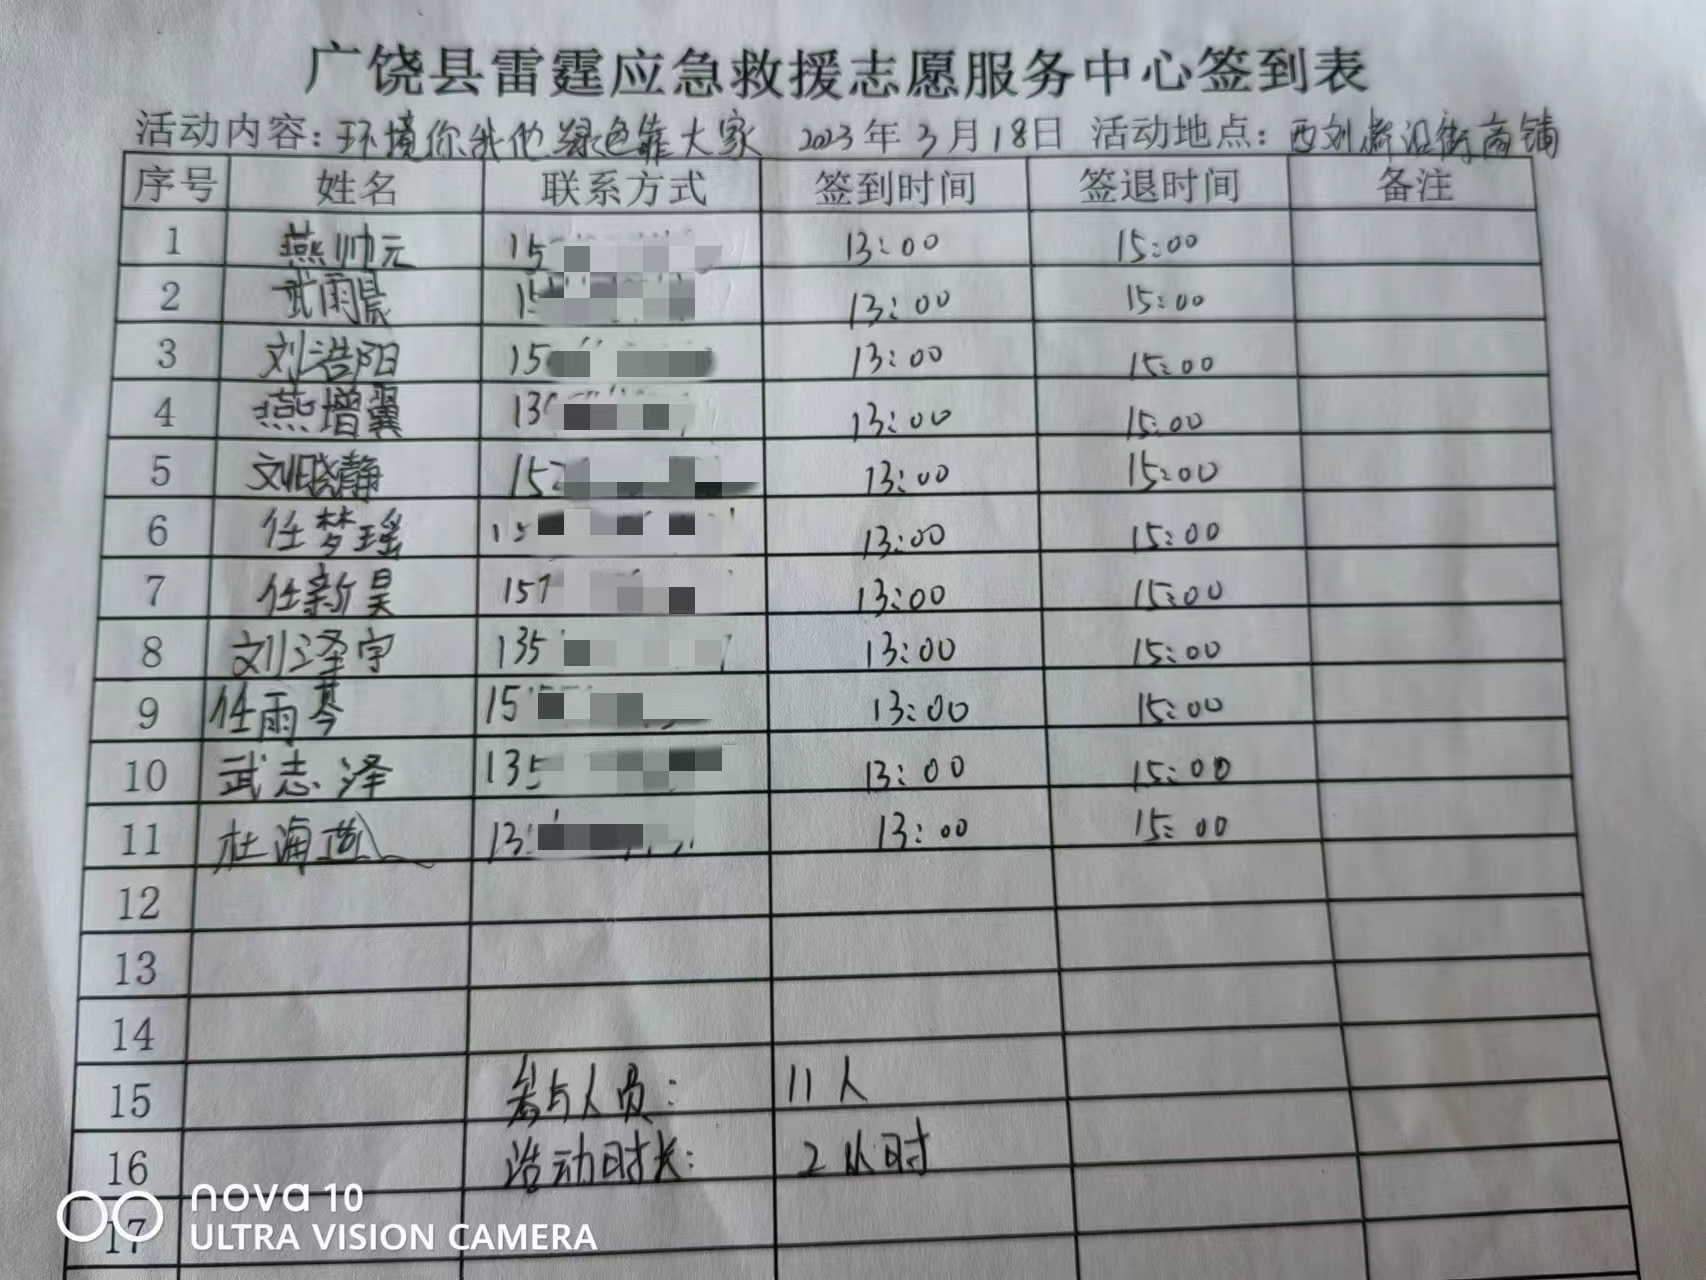 广饶县雷霆应急救援志愿服务中心签到表
活动内容：环境你我他绿色靠大家 2023年3月18日 活动地点：西刘桥沿街商铺
序号 姓名 联系方式 签到时间 签退时间 备注
1 燕帅元 15 13:00 15:00
2 武雨晨 15 13:00 15:00
3 刘浩阳 15 13:00 15:00
4 燕增翼 13 13:00 15:00
5 刘晓静 15 13:00 15:00
6 任梦瑶 15 13:00 15:00
7 任新昊 157 13:00 15:00
8 刘泽宇 135 13:00 15:00
9 任雨芩 15 13:00 15:00
10 武志泽 135 13:00 15:00
11 杜海燕 13 13:00 15:00
12
13
14
15 参与人员： 11人
16 活动时长： 2小时
17
nova 10
ULTRA VISION CAMERA